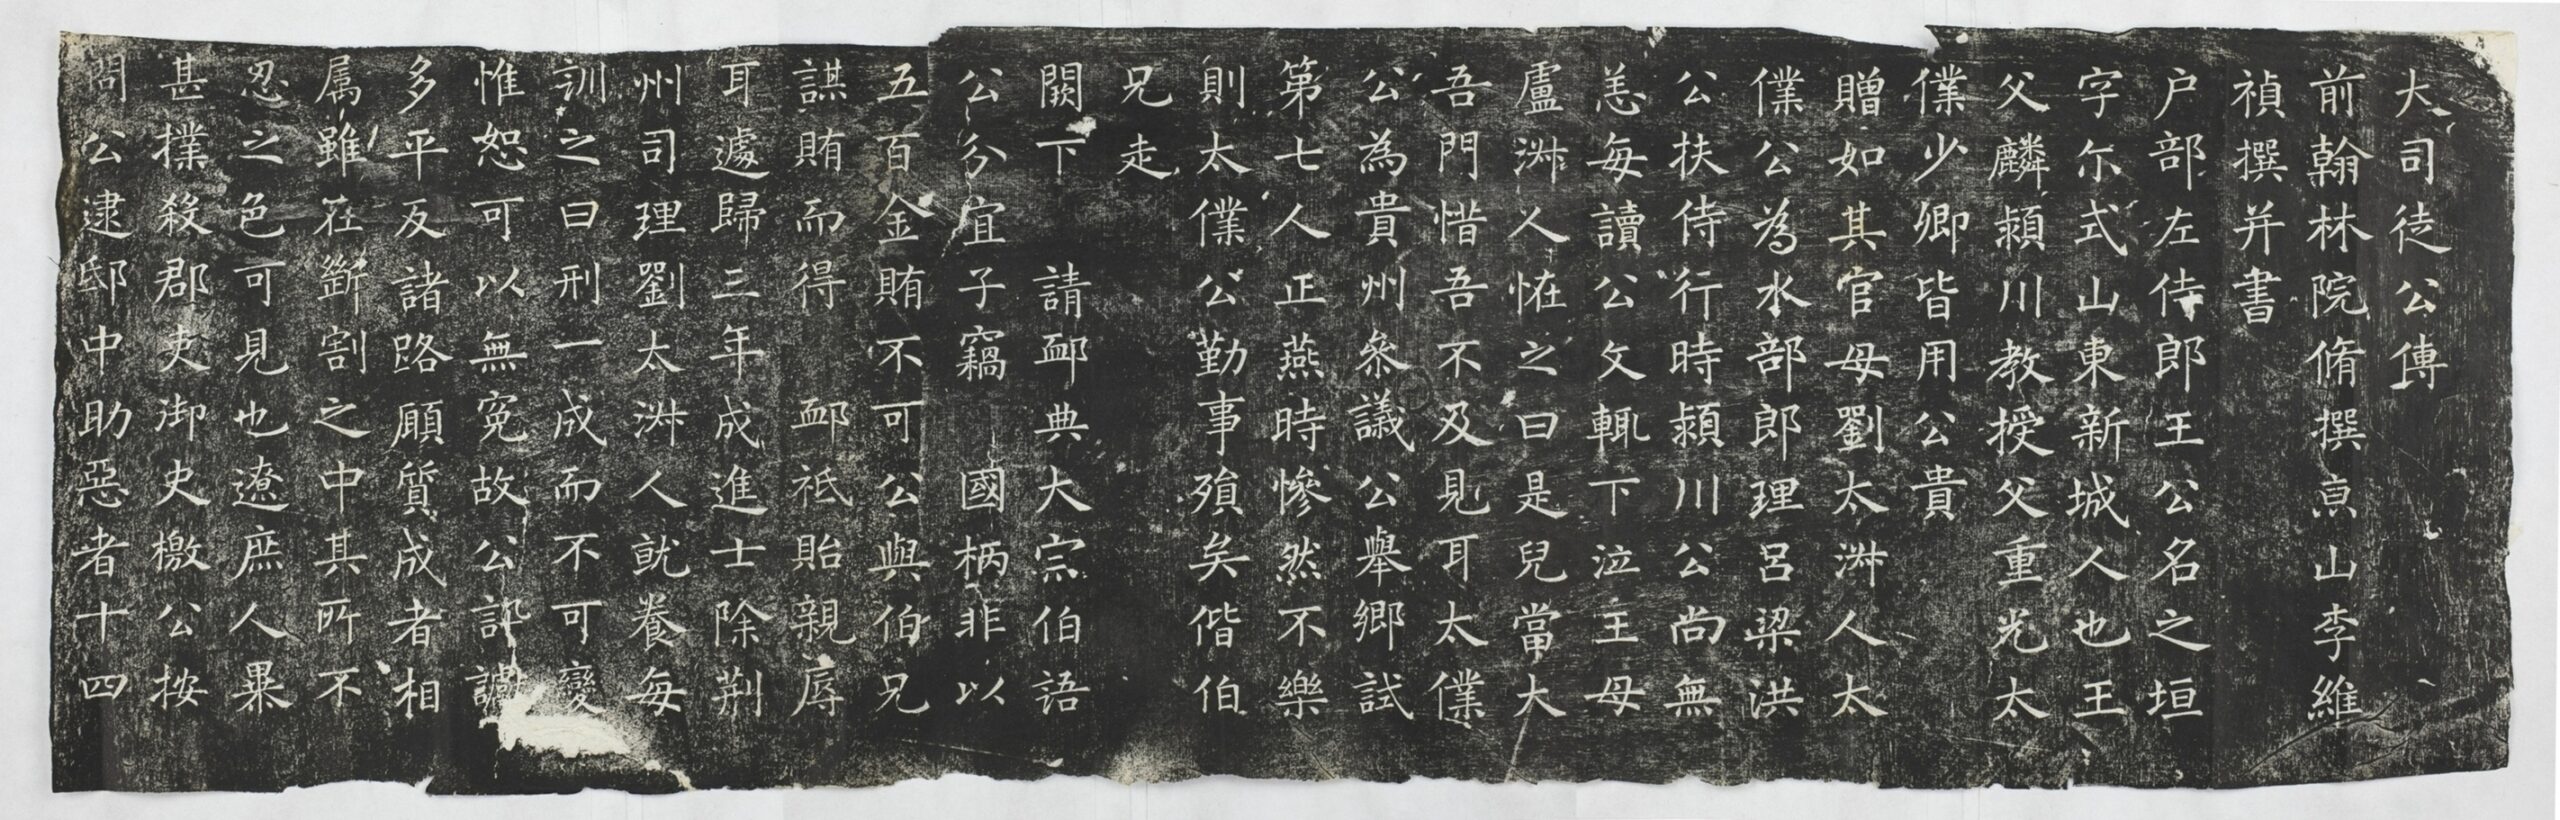 大司徒公傳
前翰林院脩撰京山李維
禎撰并書
户部左侍郎王公名之垣
字尔式山東新城人也王
父麟潁川教授父重光太
僕少卿皆用公貴
贈如其官母劉太淑人太
僕公為水部郎理呂梁洪
公扶侍行時潁川公尚無
恙每讀公文輒下泣王母
盧淑人恠之曰是兒當大
吾門惜吾不及見耳太僕
公為貴州叅議公舉鄉試
第七人正燕時慘然不樂
則太僕公勤事殞矣偕伯
兄走
闕下 請卹典大宗伯語
公分宜子竊 國柄非以
五百金賄不可公與伯兄
謀賄而得 卹祇貽親辱
耳遽歸三年成進士除荆
州司理劉太淑人就養每
訓之曰刑一成而不可變
惟恕可以無寃故公訊讞
多平反諸路願質成者相
属雖在斷割之中其所不
忍之色可見也遼庶人畢
甚撲殺郡吏御史檄公按
問 公逮邸中助惡者十四